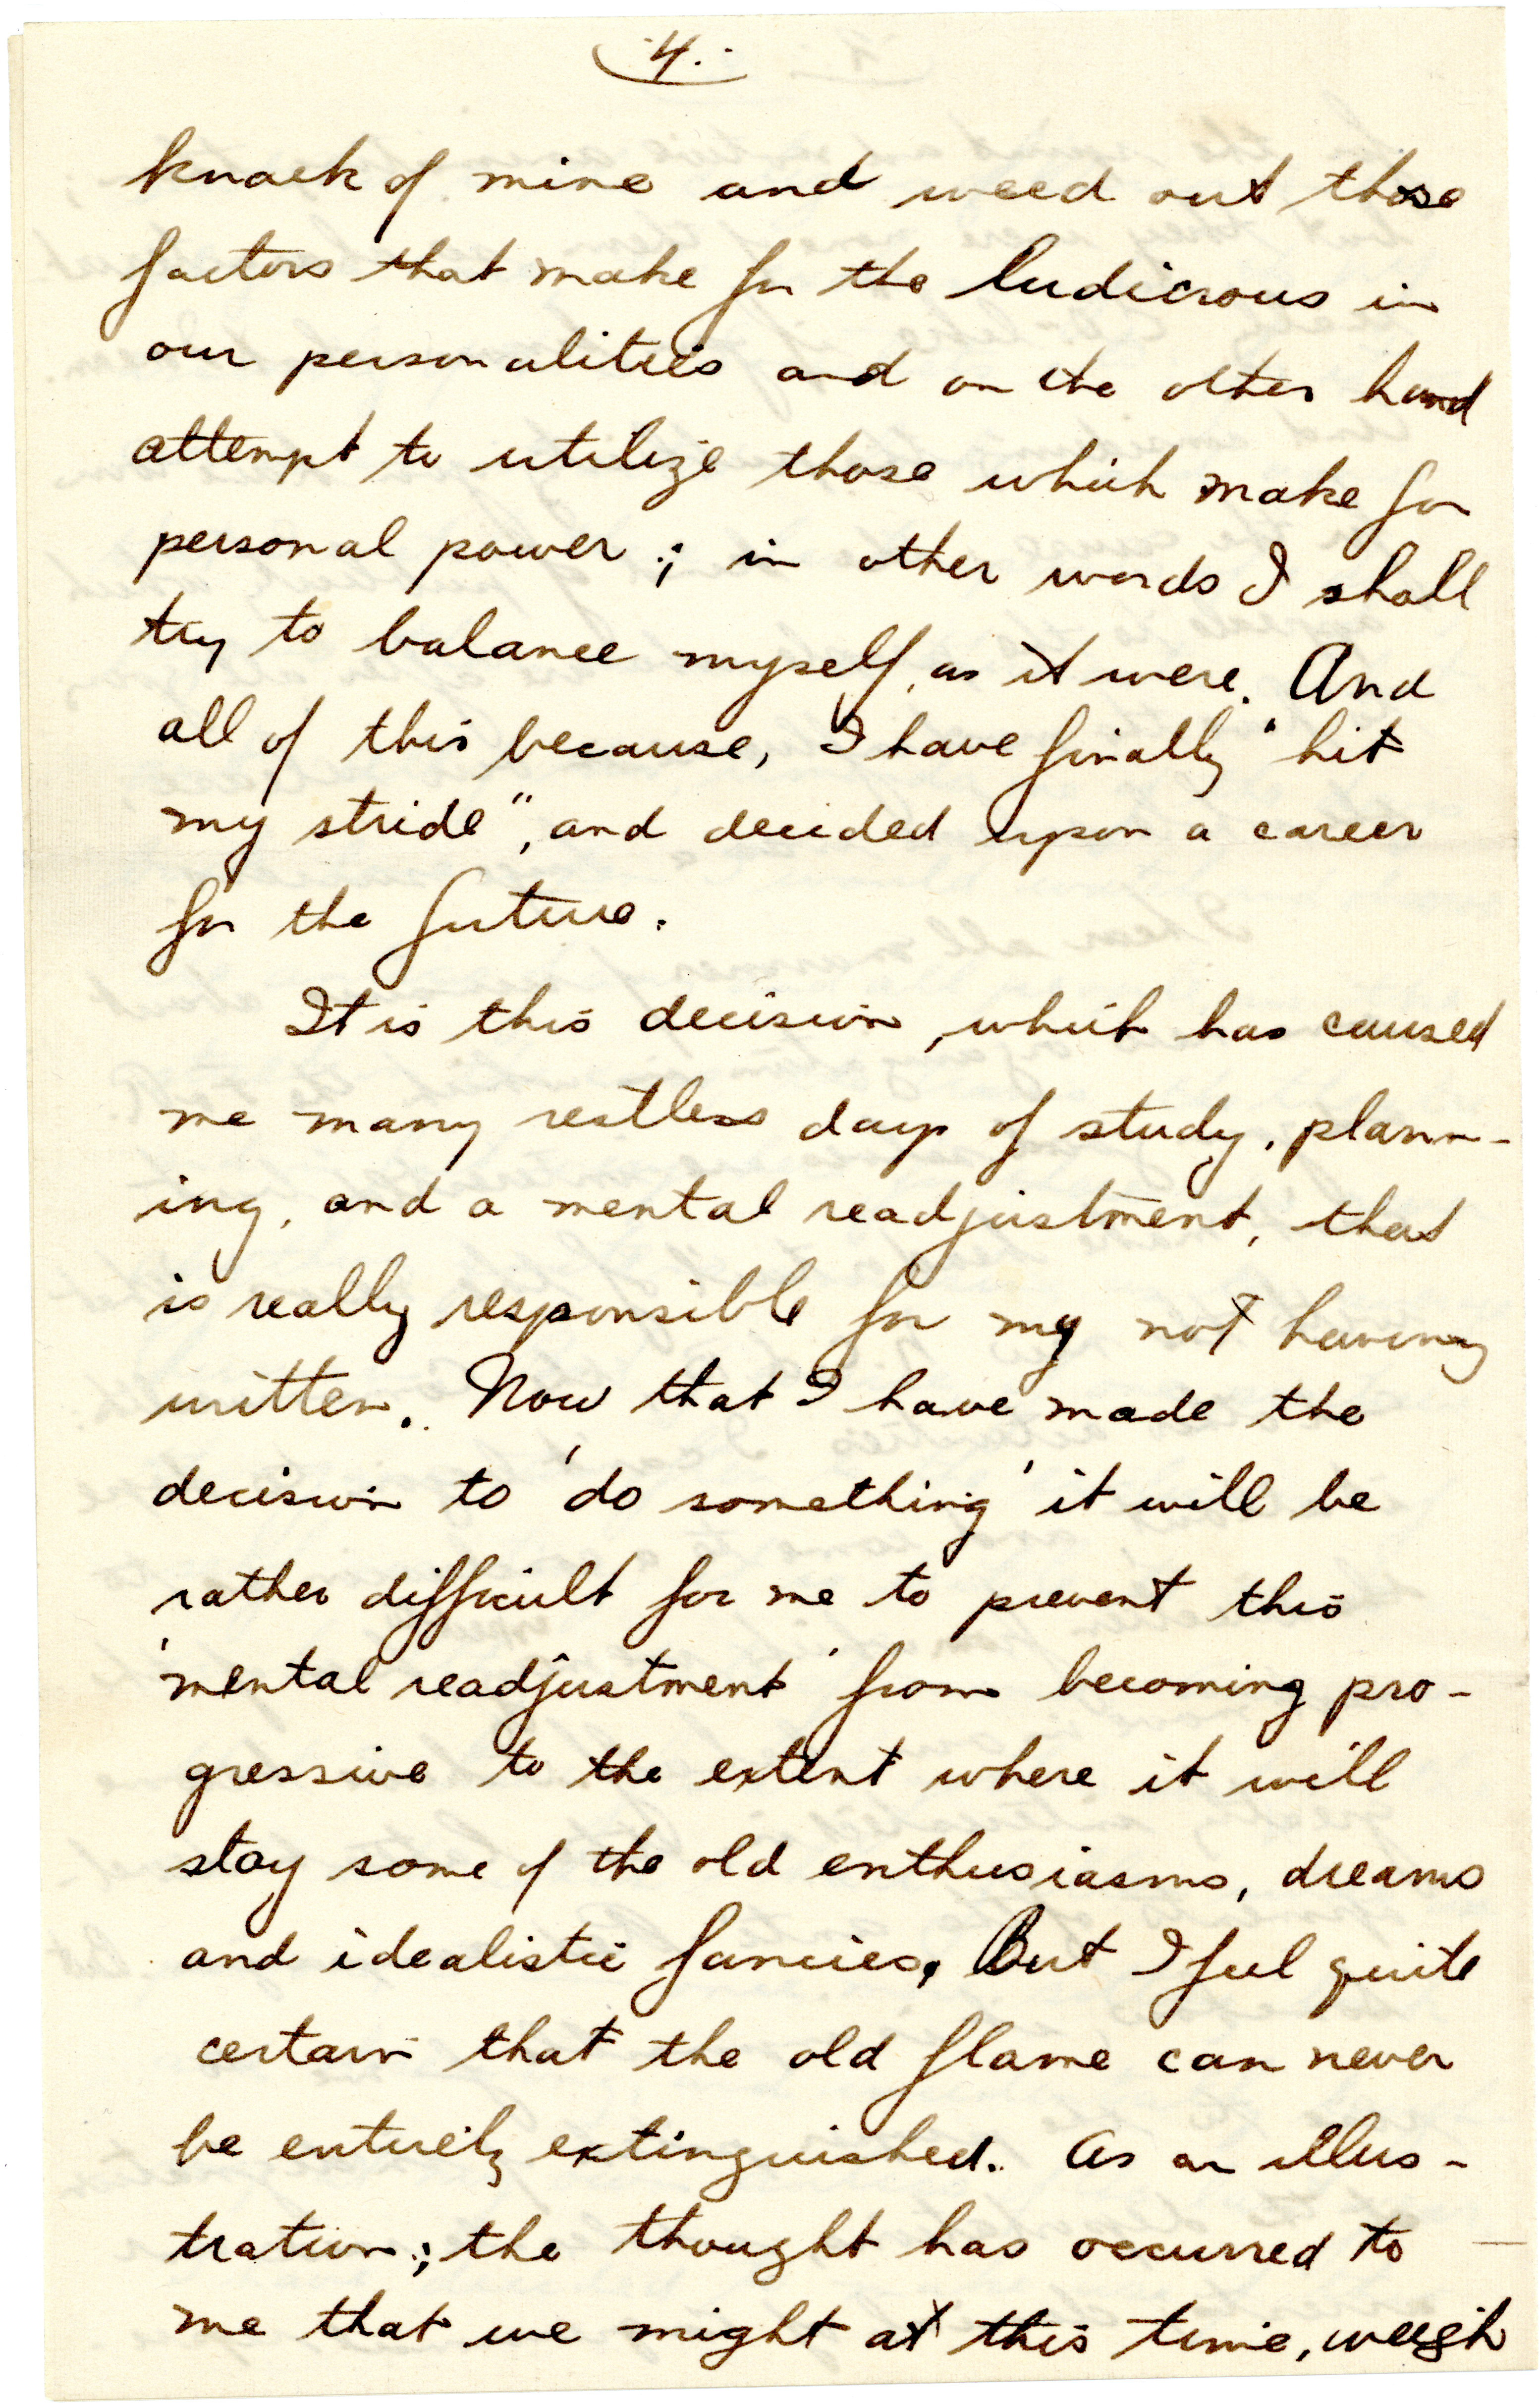 4.
knack of mine and weed out those
factors that make for the ludicrous in
our personalities and on the other hand
attempt to utilize those which make for
personal power; in other words I shall
try to balance myself, as it were. And
all of this because, I have finally "hit
my stride", and decided upon a career
for the future.
It is this decision, which has caused
me many restless days of study, plann-
ing, and a mental readjustment, that
is really responsible for my not having
written. Now that I have made the
decision to 'do something' it will be
rather difficult for me to prevent this
'mental readjustment' from becoming pro-
gressive to the extent where it will
stay some of the old enthusiasms, dreams
and idealistic fancies. But I feel quite
certain that the old flame can never
be entirely extinguished. As an illus-
tration; the thought has occurred to
me that we might at this time, weigh